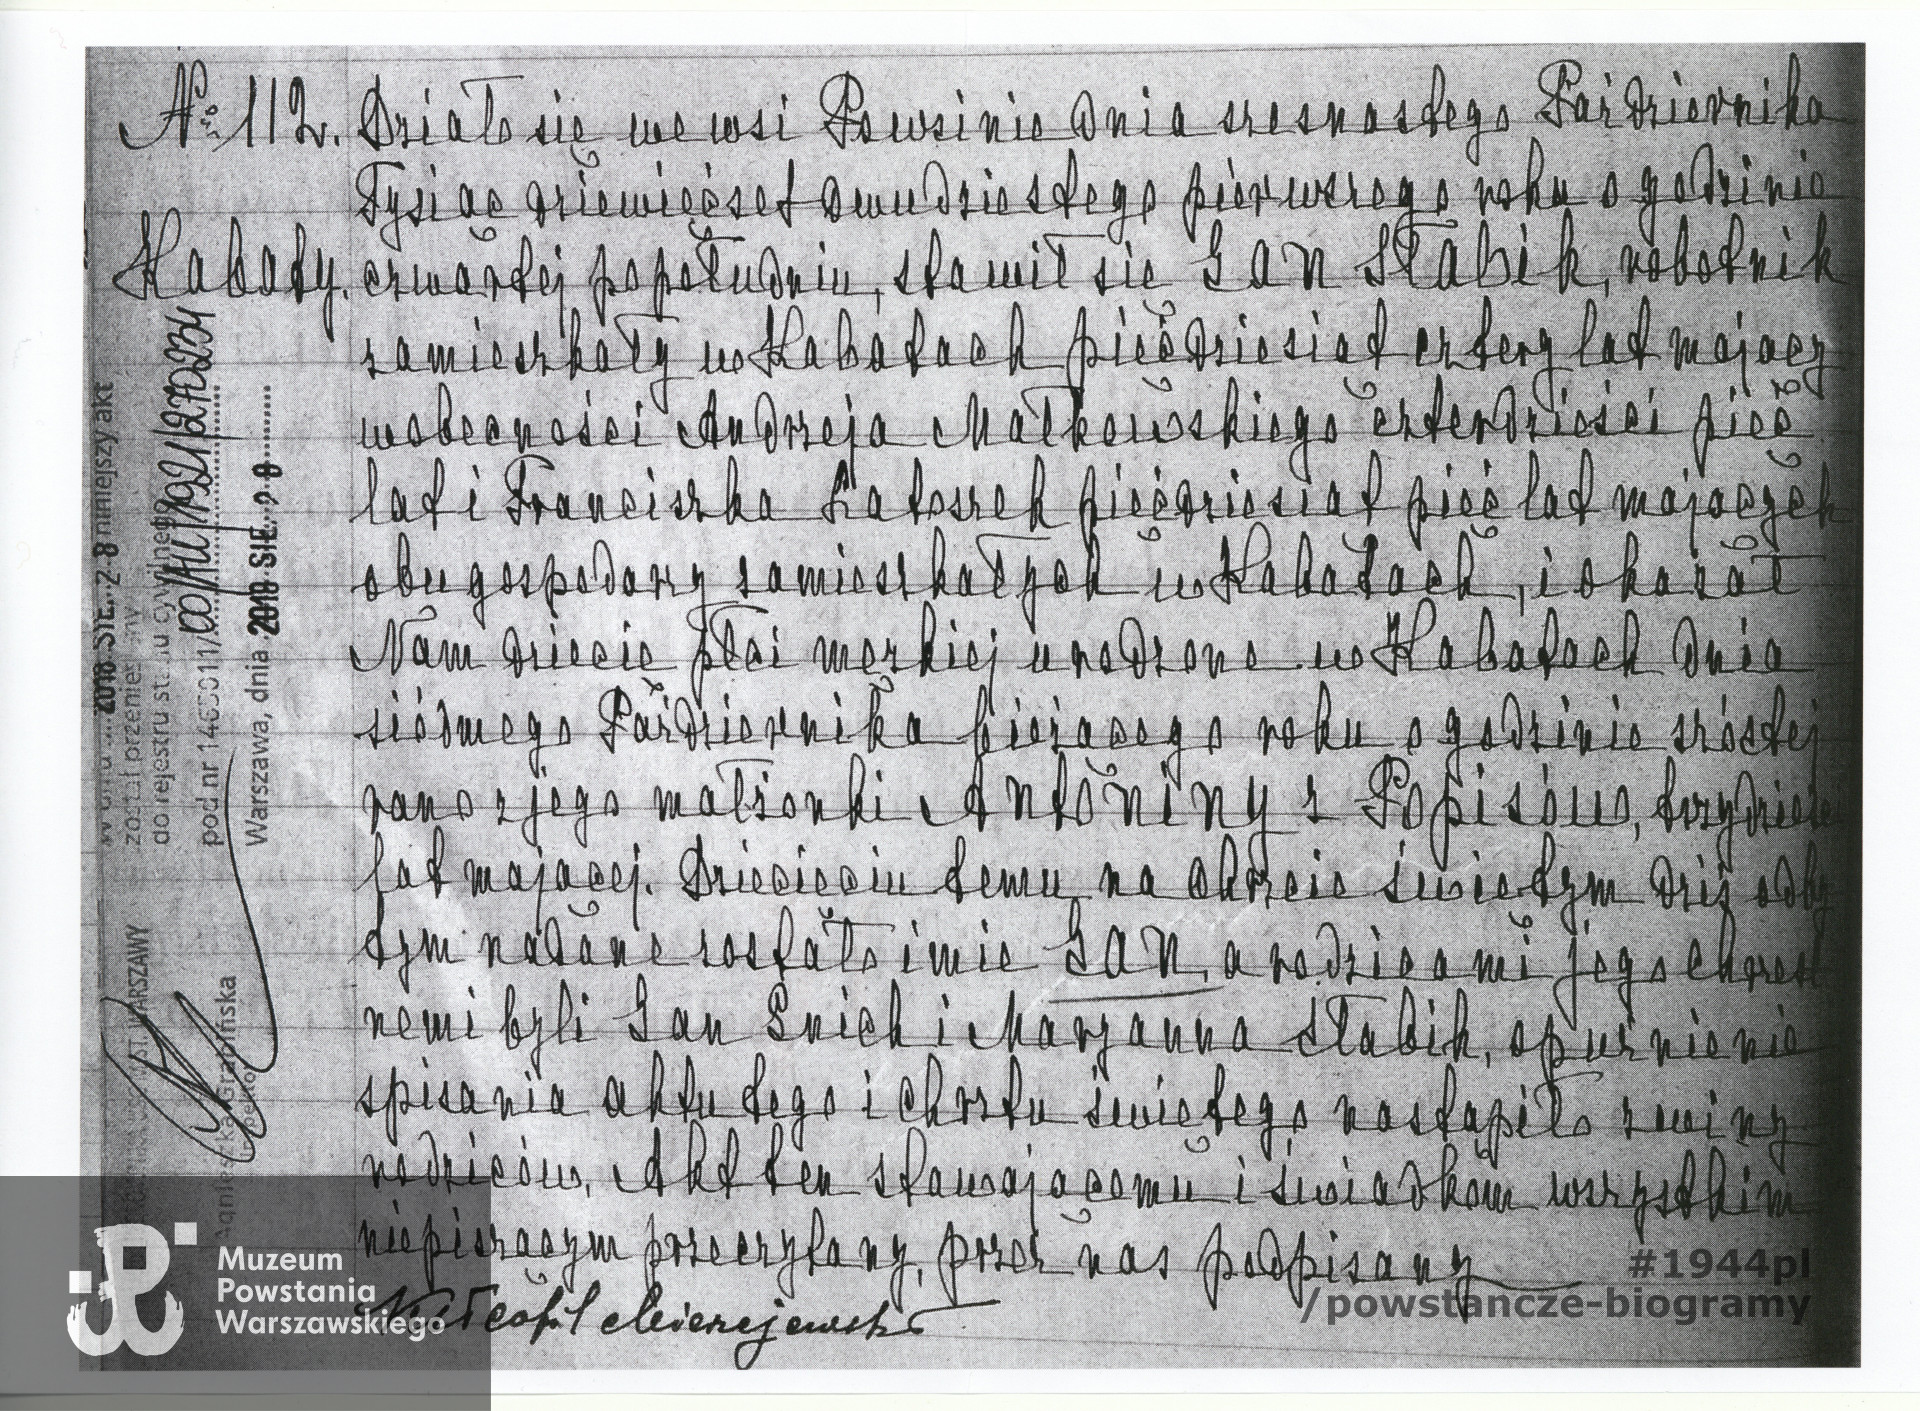 No 112. Działo się we wsi Powsinie dnia szesnastego Października
Tysiąc dziewięćset dwudziestego pierwszego roku o godzinie
Kabaty. czwartej popołudniu, stawił się JAN STABIK, robotnik
zamieszkały w Kabatach pięćdziesiąt cztery lat mający
wobecności Andrzeja Małkowskiego czterdzieści pięć
lat i Franciszka Latoszek pięćdziesiąt pięć lat mających
obu gospodarzy zamieszkałych w Kabatach, i okazał
Nam dziecię płci męzkiej urodzone w Kabatach dnia
siódmego Października bieżącego roku o godzinie szóstej
rano z jego małżonki ANTONINY z Popisów, trzydzieści
lat mającej. Dziecięciu temu na chrzcie świętym dziś odby
tym nadane zostało imię JAN, a rodzicami jego chrzest
nemi byli Jan i Maryanna Stabik, opóźnienie
spisania aktu tego i chrztu świętego nastąpiło z winy
rodziców. Akt ten stawającemu i świadkom wszystkim
niepiszącym przeczytany, przez nas podpisany
niniejszy akt
2018 SIE. 2 8
został przeniesiony
do rejestru stanu cywilnego
pod nr 1465011/00/AU/1921/270234
Warszawa, dnia 2018 SIE. 2 8
ST. WARSZAWY
Agnieszka Grabińska
Muzeum
Powstania
Warszawskiego
#1944pl
/powstancze-biogramy